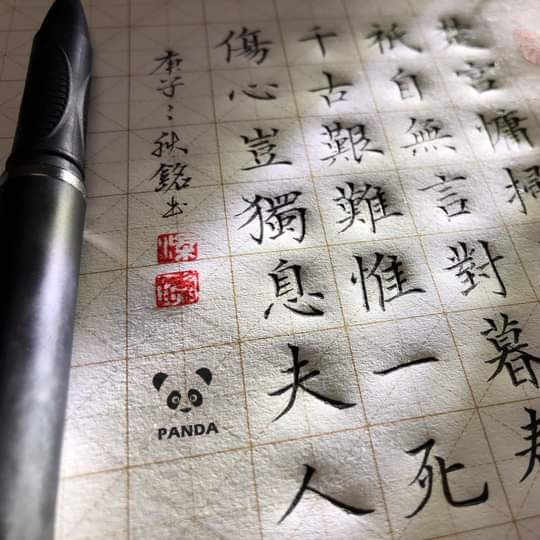 楚宮慵掃
祇自無言對暮
千古艱難惟一死
傷心豈獨息夫人
庚子之秋銘书
PANDA